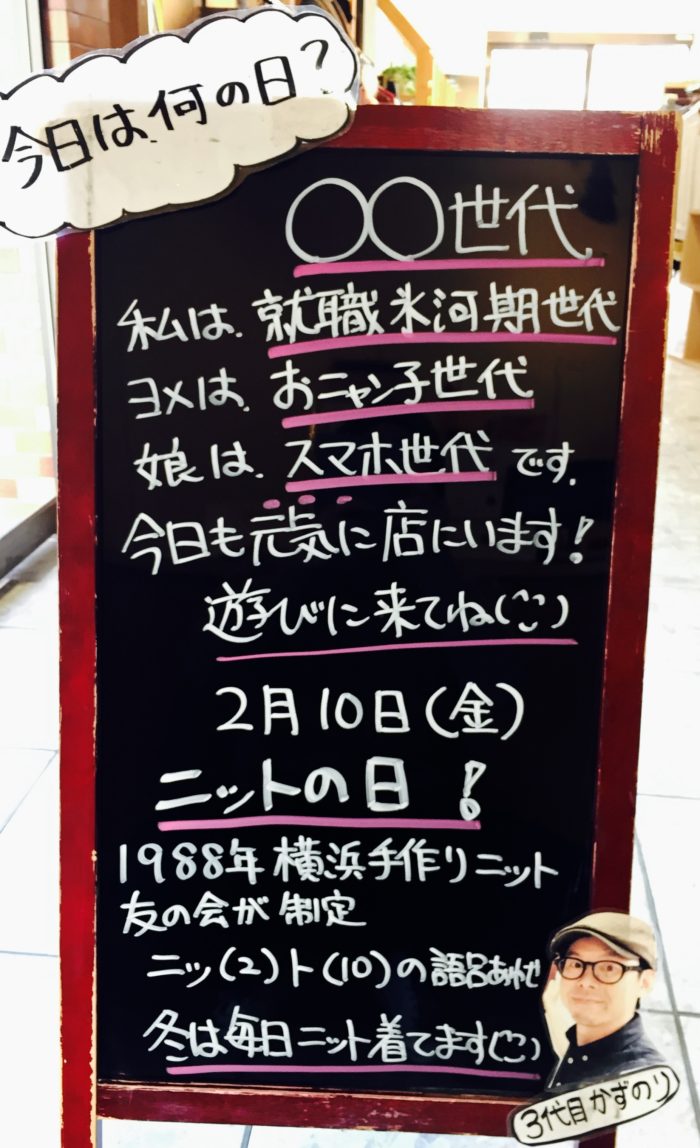 今日は何の日?
〇〇世代
私は、就職氷河期世代
ヨメは、おニャン子世代
娘は、スマホ世代です。
今日も元気に店にいます!
遊びに来てね(^^)
2月10日(金)
ニットの日!
1988年横浜手作りニット
友の会が制定
ニッ(2)ト(10)の語呂あわせ
冬は毎日ニット着てます(^^)
3代目かずのり